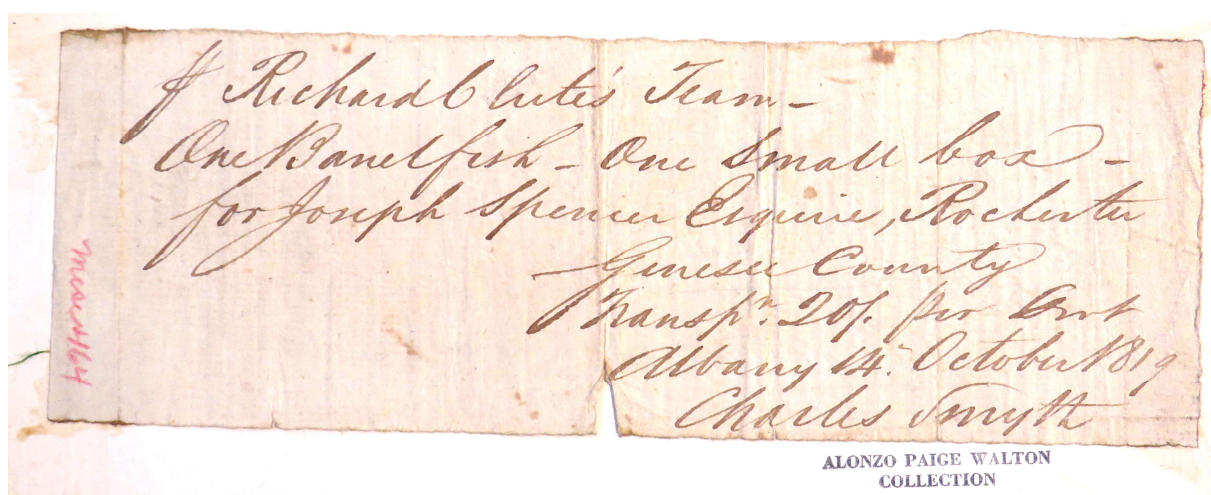 Richard Clute's Team –
One Barrel fish – One Small box –
for Joseph Spencer Esquire, Rochester
Genesee County
Transpn. 20/. per Cwt
Albany 14. October 1819
Charles Smyth
ALONZO PAIGE WALTON
COLLECTION